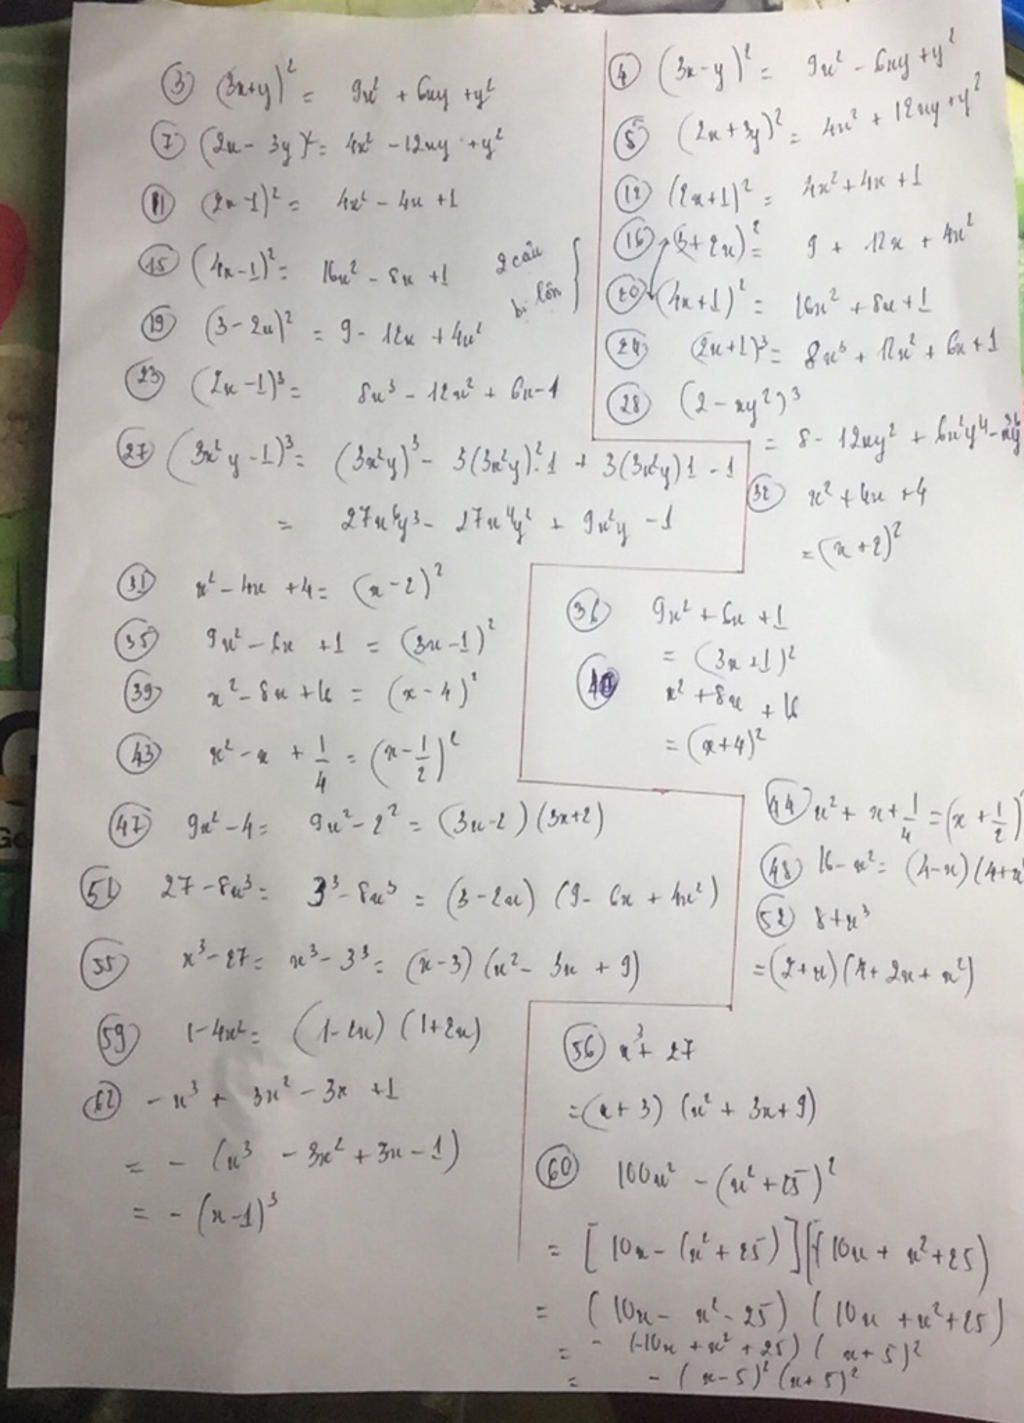 ③ (3x+y)² = 9x² + 6xy + y²
④ (3x-y)² = 9x² - 6xy + y²
⑦ (2x - 3y)² = 4x² - 12xy + y²
⑧ (2x + 3y)² = 4x² + 12xy + y²
⑪ (2x-1)² = 4x² - 4x + 1
⑫ (2x+1)² = 4x² + 4x + 1
⑮ (4x-1)² = 16x² - 8x + 1
2 câu
bị lộn
⑯ (3+2x)² = 9 + 12x + 4x²
⑳ (4x+1)² = 16x² + 8x + 1
⑲ (3 - 2x)² = 9 - 12x + 4x²
㉔ (2x+1)³ = 8x³ + 12x² + 6x + 1
㉓ (2x-1)³ = 8x³ - 12x² + 6x - 1
㉘ (2 - xy²)³
= 8 - 12xy² + 6x²y⁴ - x³y⁶
㉗ (3x²y - 1)³ = (3x²y)³ - 3(3x²y)².1 + 3(3x²y)1 - 1
= 27x⁶y³ - 27x⁴y² + 9x²y - 1
㉜ x² + 4x + 4
= (x+2)²
㉛ x² - 4x + 4 = (x-2)²
㉟ 9x² - 6x + 1 = (3x-1)²
㊱ 9x² + 6x + 1
= (3x+1)²
㊴ x² - 8x + 16 = (x-4)²
㊵ x² + 8x + 16
= (x+4)²
㊸ x² - x + 1/4 = (x - 1/2)²
㊹ x² + x + 1/4 = (x + 1/2)²
㊼ 9x² - 4 = 9x² - 2² = (3x-2)(3x+2)
㊽ 16 - x² = (4-x)(4+x
(51) 27 - 8x³ = 3³ - 8x³ = (3-2x) (9 - 6x + 4x²)
(52) 8 + x³
= (2+x)(4 + 2x + x²)
(55) x³ - 27 = x³ - 3³ = (x-3) (x² - 3x + 9)
(59) 1 - 4x² = (1-2x) (1+2x)
(56) x³ + 27
= (x+3) (x² + 3x + 9)
(62) -x³ + 3x² - 3x + 1
= - (x³ - 3x² + 3x - 1)
= - (x-1)³
(60) 100x² - (x² + 25)²
= [10x - (x² + 25)] (10x + x² + 25)
= (10x - x² - 25) (10x + x² + 25)
= - (-10x + x² + 25) (x+5)²
= - (x-5)² (x+5)²